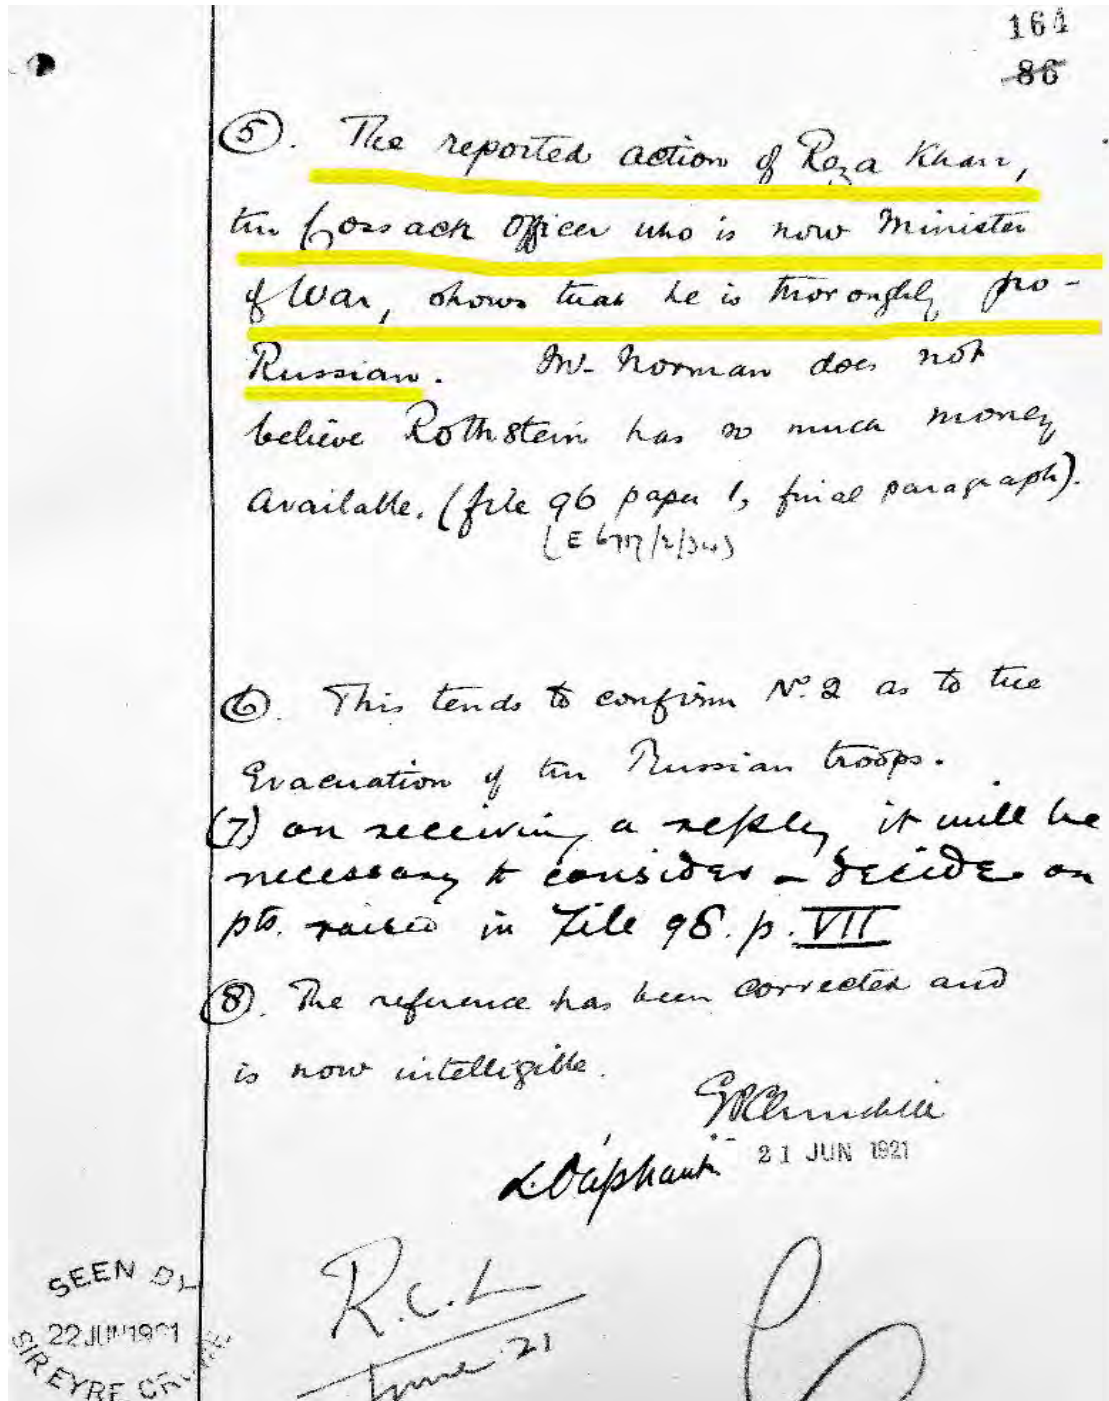 164
86
(5). The reported action of Reza Khan,
the Cossack Officer who is now Minister
of War, shows that he is thoroughly pro-
Russian. Mr. Norman does not
believe Rothstein has so much money
available. (file 96 paper 1, final paragraph).
(E 6717/2/34)
(6). This tends to confirm No. 2 as to the
Evacuation of the Russian troops.
(7) on receiving a reply it will be
necessary to consider & decide on
pts. raised in File 98. p. VII
(8). The reference has been corrected and
is now intelligible.
GPChurchill
21 JUN 1921
L. Oliphant
R.C.L
June 21
SEEN BY
22 JUN 1921
SIR EYRE CROWE